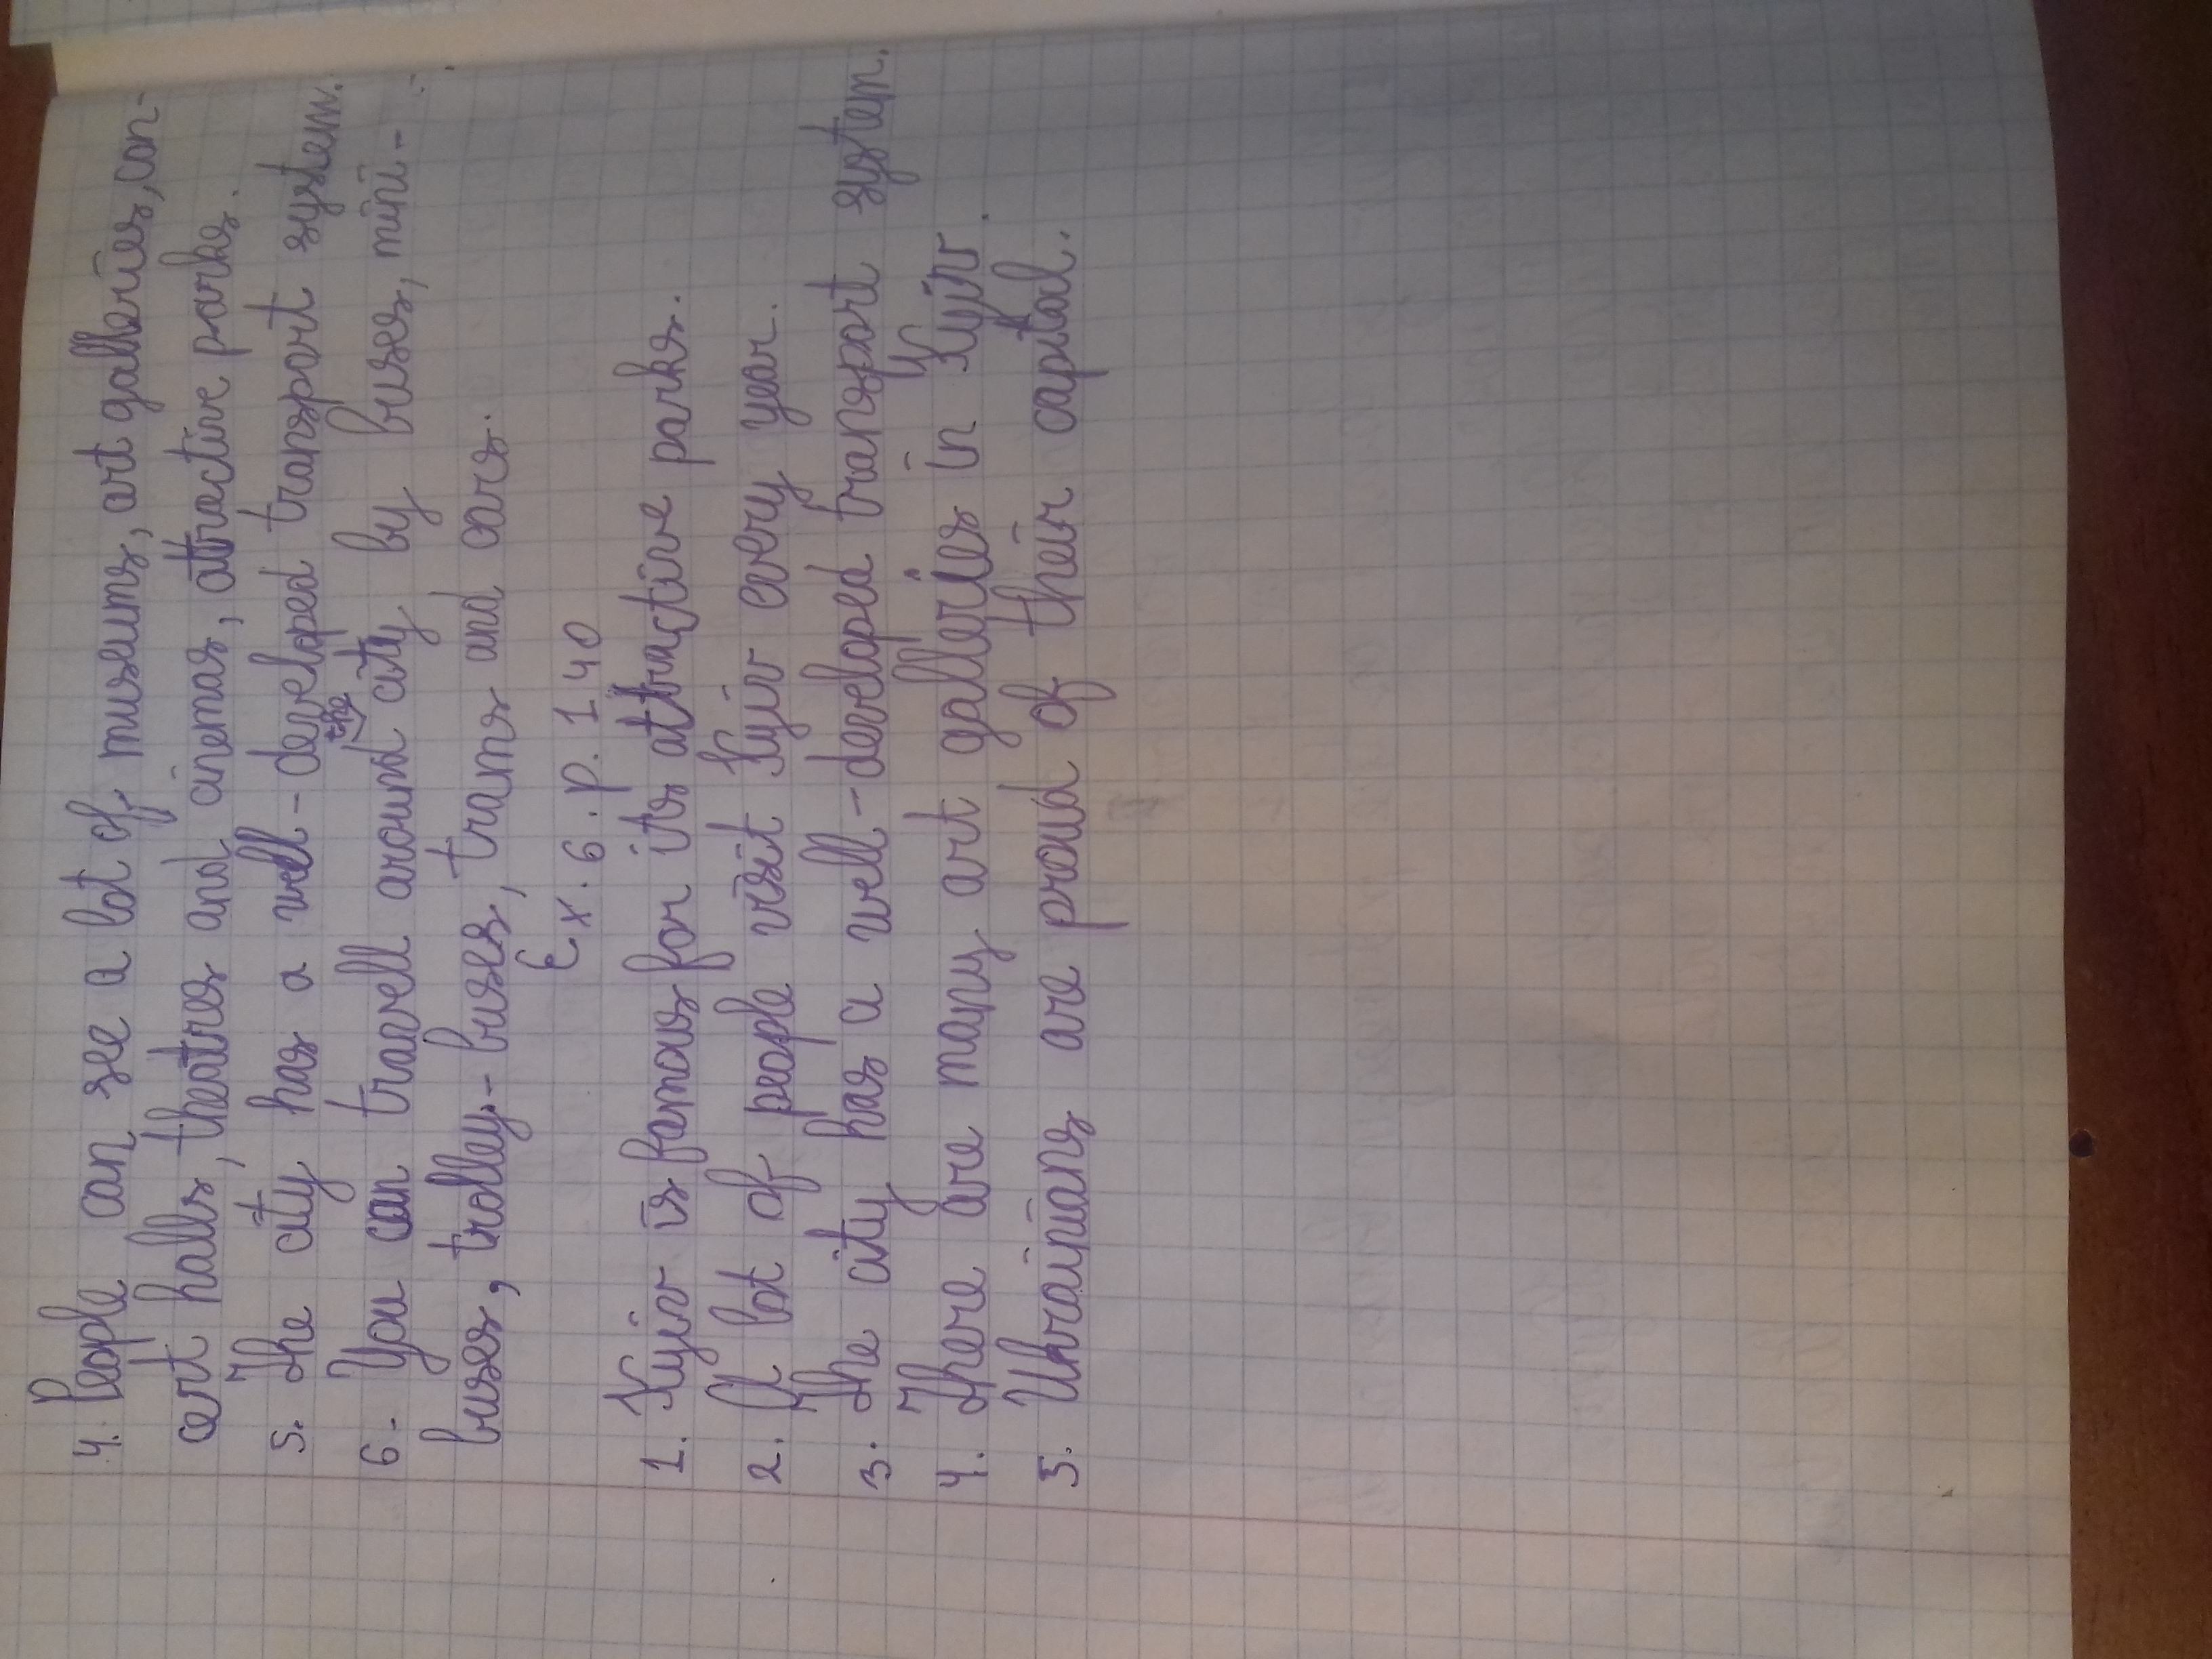 4. People can see a lot of museums, art galleries, con-
cert halls, theatres and cinemas, attractive parks.
5. The city has a well-developed transport system.
6. You can travell around the city by buses, mini-
buses, trolley-buses, trams and cars.
Ex. 6. p. 140
1. Kyiv is famous for its attractive parks.
2. A lot of people visit Kyiv every year.
3. The city has a well-developed transport system.
4. There are many art galleries in Kyiv.
5. Ukrainians are proud of their capital.